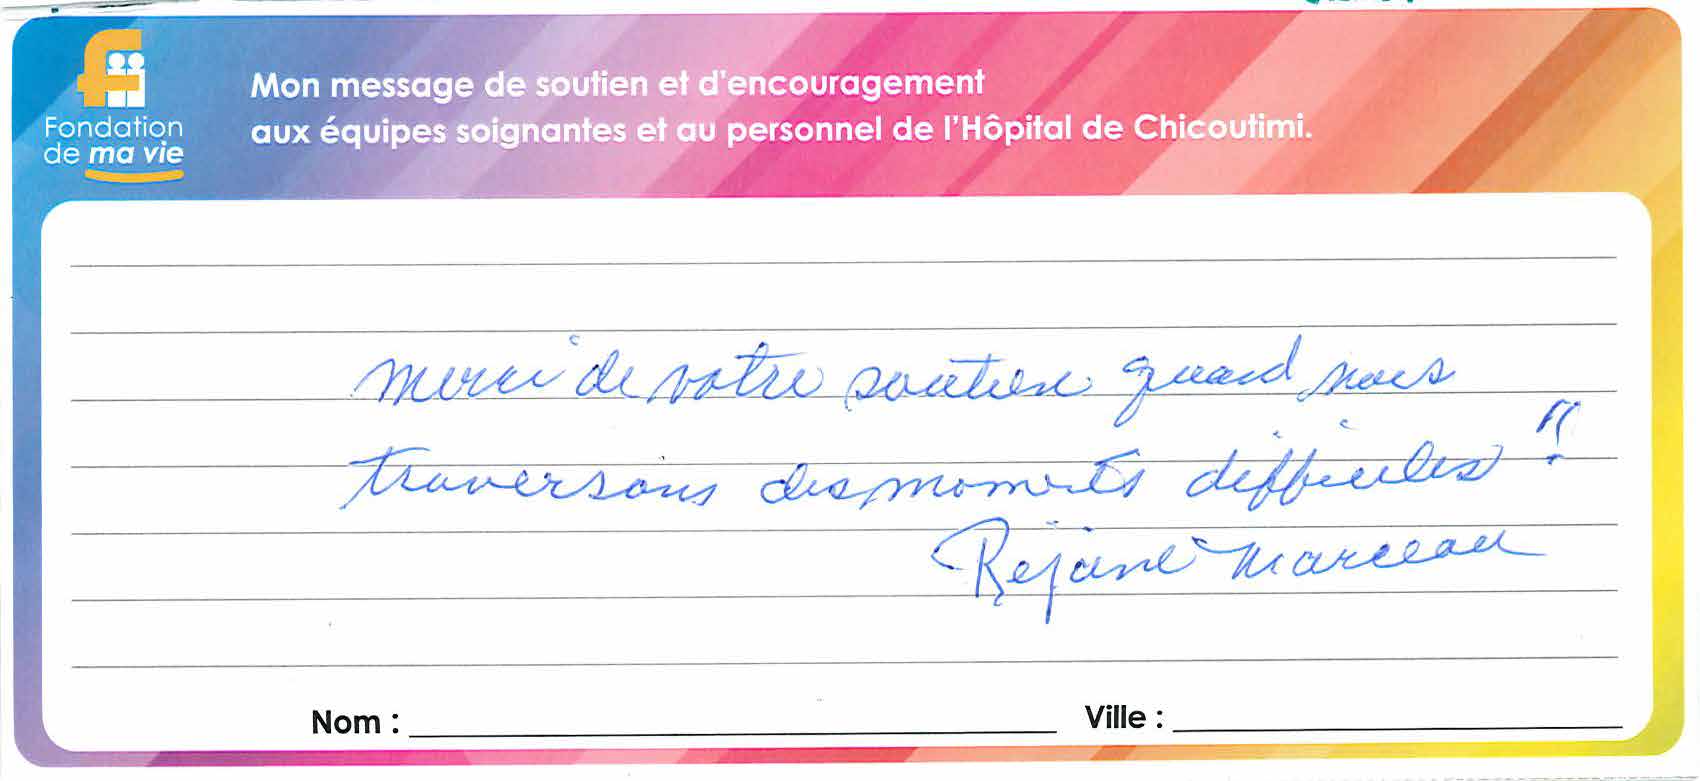 Fondation
de ma vie
Mon message de soutien et d'encouragement
aux équipes soignantes et au personnel de l'Hôpital de Chicoutimi.
Merci de votre soutien quand nous
traversons des moments difficiles!!
Réjane Marceau
Nom :
Ville :